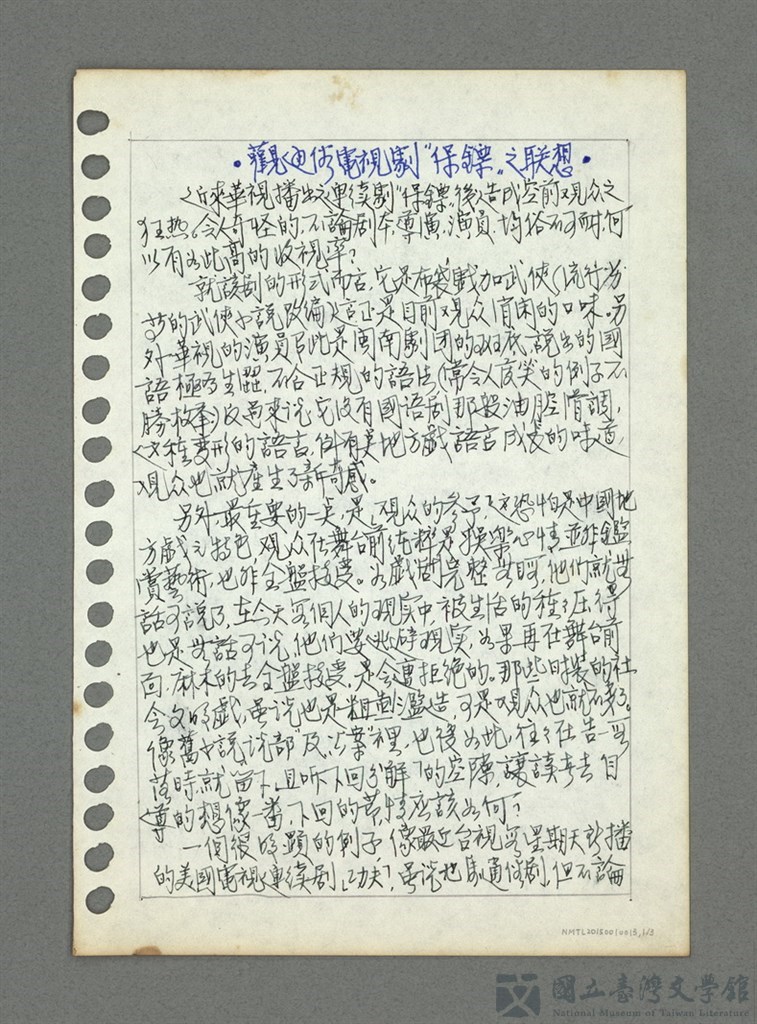 •觀通俗電視劇"保鏢"之联想•
近來華視播出之連续劇"保鏢"後造成空前观众之
狂热。令人奇怪的,不論剧本、導演、演員均俗不可耐,何
以有如此高的收視率?
就該劇的形式而言,它是布袋戲加武俠(流行
的武俠小說改编)這正是目前观众消闲的口味。另
外華視的演員彼此是闽南劇团的班底,說出的國
語極为生澀,不合正規的語法(常令人发笑的例子不
勝枚举)反過來说它没有國语剧那般油腔滑調,
這種变形的語言,倒有点地方戲語言成長的味道,
观众也就產生了新奇感。
另外,最重要的一点,是「观众的參予」這恐怕是中國地
方戲之特色,观众在舞台前純粹是娱樂心情並非鑑
賞藝術,也非全盤接受。如戲劇完整無暇,他們就無
話可說了,在今天每個人的现实中,被生活的種種压得
也是無話可说,他們要逃辟现实,如果再在舞台前
面,麻木的去全盤接受,是會遭拒绝的。那些时裝的社
会文明戲,虽说也是粗製濫造,可是观众也就不來了。
像舊小說"说部"及"公案"裡,也復如此,往往在告一段
落時,就留下「且听下回分解」的空隙,讓讀者去自
尊的想像一番,下回的劳什应該如何?
一個很明顯的例子,像最近台視每星期天所播
的美國電視連续劇「功夫」,虽说也屬通俗劇,但不論
NMTL20150010013,1/3
國立臺灣文學館
National Museum of Taiwan Literature